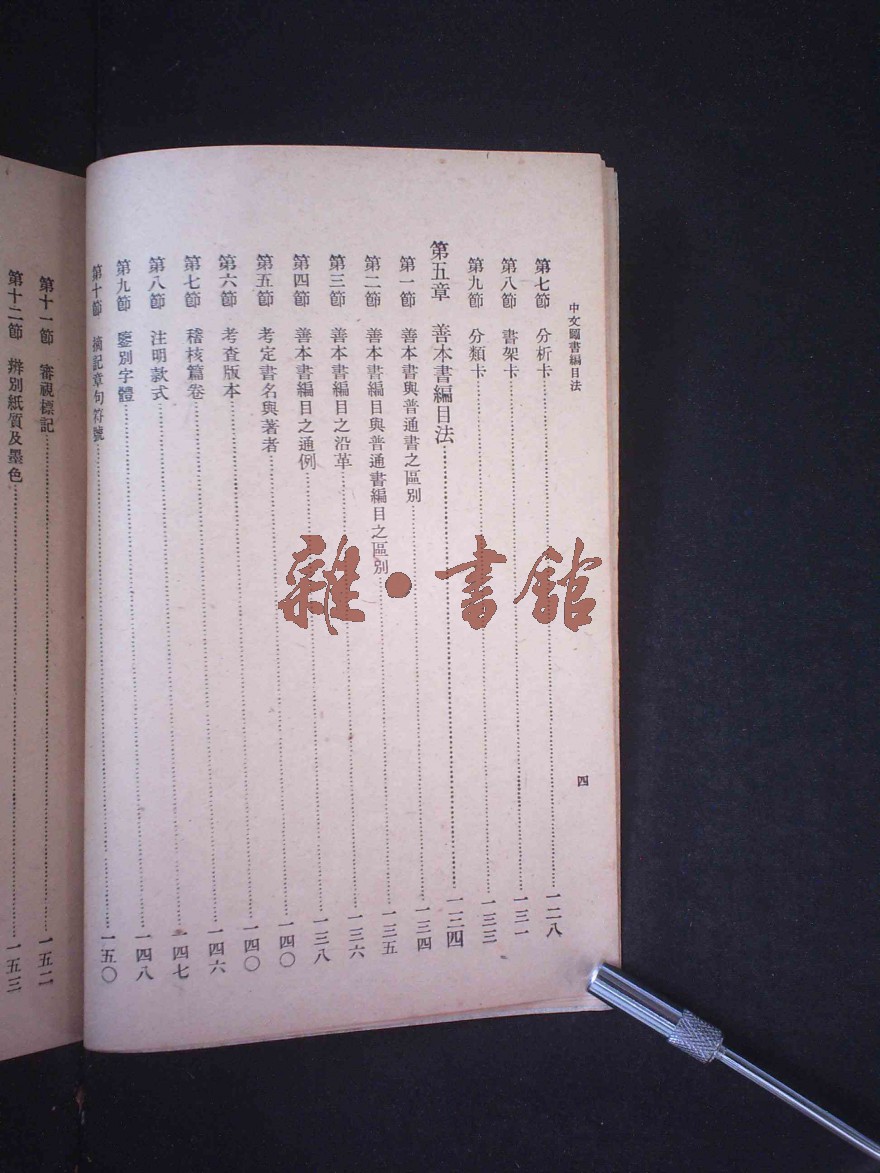 中文圖書編目法
四
第七節 分析卡……一二八
第八節 書架卡……一三一
第九節 分類卡……一三三
第五章 善本書編目法……一三四
第一節 善本書與普通書之區別……一三四
第二節 善本書編目與普通書編目之區別……一三五
第三節 善本書編目之沿革……一三六
第四節 善本書編目之通例……一三八
第五節 考定書名與著者……一四〇
第六節 考查版本……一四〇
第七節 稽核篇卷……一四六
第八節 注明款式……一四七
第九節 鑒別字體……一四八
第十節 摘記章句符號……一五〇
第十一節 審視標記……一五二
第十二節 辨別紙質及墨色……一五三
雜·書館